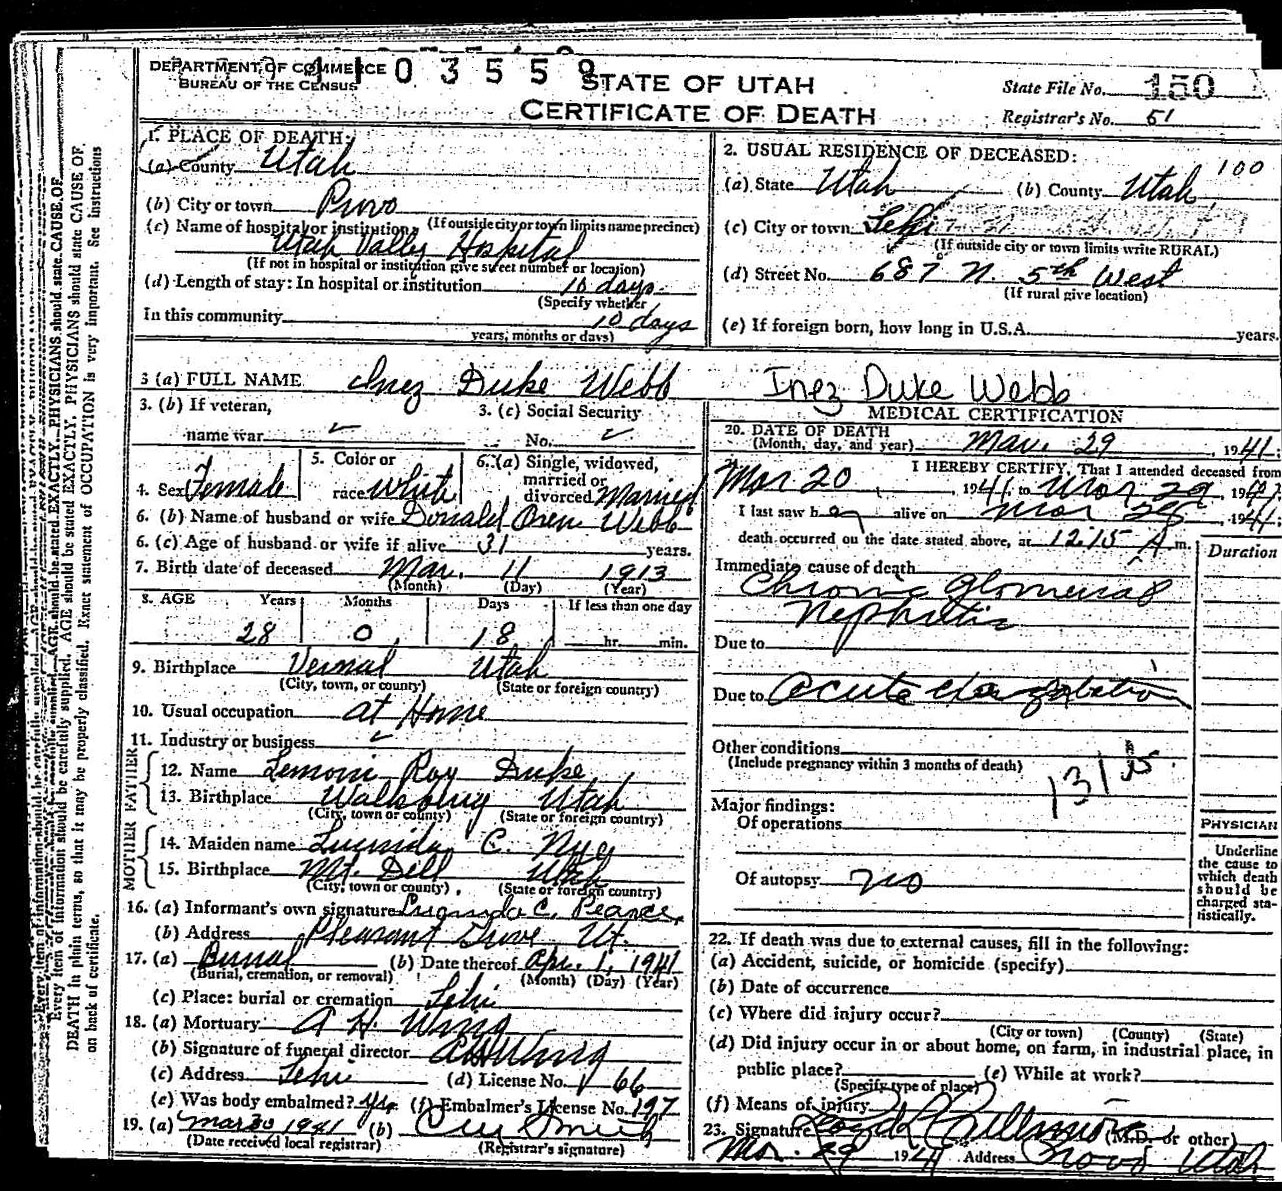 DEPARTMENT OF COMMERCE
BUREAU OF THE CENSUS
1103559
STATE OF UTAH
CERTIFICATE OF DEATH
State File No. 150
Registrar's No. 51
1. PLACE OF DEATH:
(a) County Utah
(b) City or town Provo
(If outside city or town limits name precinct)
(c) Name of hospital or institution:
Utah Valley Hospital
(If not in hospital or institution give street number or location)
(d) Length of stay: In hospital or institution 10 days
(Specify whether
In this community 10 days
years, months or days)
2. USUAL RESIDENCE OF DECEASED: 100
(a) State Utah (b) County Utah
(c) City or town Lehi
(If outside city or town limits write RURAL)
(d) Street No. 687 N. 5th West
(If rural give location)
(e) If foreign born, how long in U.S.A. years.
3 (a) FULL NAME Inez Duke Webb Inez Duke Webb
3. (b) If veteran,
name war
3. (c) Social Security
No.
4. Sex Female
5. Color or
race white
6. (a) Single, widowed,
married or
divorced Married
6. (b) Name of husband or wife Donald Webb
6. (c) Age of husband or wife if alive 31 years.
7. Birth date of deceased Mar. 11 1913
(Month) (Day) (Year)
8. AGE Years Months Days If less than one day
28 0 18 hr. min.
9. Birthplace Vernal Utah
(City, town, or county) (State or foreign country)
10. Usual occupation at Home
11. Industry or business
FATHER
12. Name Lemoni Roy Duke
13. Birthplace Wallsburg Utah
(City, town or county) (State or foreign country)
MOTHER
14. Maiden name Lucinda C. Nye
15. Birthplace Mt. Dell Utah
(City, town or county) (State or foreign country)
16. (a) Informant's own signature Lucinda C. Pearce
(b) Address Pleasant Grove Ut.
17. (a) Burial (b) Date thereof Apr. 1, 1941
(Burial, cremation, or removal) (Month) (Day) (Year)
(c) Place: burial or cremation Lehi
18. (a) Mortuary A H. Wing
(b) Signature of funeral director A H Wing
(c) Address Lehi (d) License No. 66
(e) Was body embalmed? Yes (f) Embalmer's License No. 197
19. (a) Mar 30 1941 (b)
(Date received local registrar) (Registrar's signature)
MEDICAL CERTIFICATION
20. DATE OF DEATH
(Month, day, and year) Mar. 29, 1941.
I HEREBY CERTIFY, That I attended deceased from
Mar 20, 1941 to Mar 29, 1941
I last saw h er alive on Mar 28, 1941.
death occurred on the date stated above, at 12:15 A m.
Duration
Immediate cause of death
Chronic Glomerular
Nephritis
Due to
Due to Acute
Other conditions
(Include pregnancy within 3 months of death)
131
Major findings:
Of operations
Of autopsy no
PHYSICIAN
Underline
the cause to
which death
should be
charged sta-
tistically.
22. If death was due to external causes, fill in the following:
(a) Accident, suicide, or homicide (specify)
(b) Date of occurrence
(c) Where did injury occur?
(City or town) (County) (State)
(d) Did injury occur in or about home, on farm, in industrial place, in
public place? (e) While at work?
(Specify type of place)
(f) Means of injury
23. Signature (M.D. or other)
Mar. 29 1941 Address Provo Utah
Every item of information should be carefully supplied. AGE should be stated EXACTLY. PHYSICIANS should state CAUSE OF
DEATH in plain terms, so that it may be properly classified. Exact statement of OCCUPATION is very important. See instructions
on back of certificate.